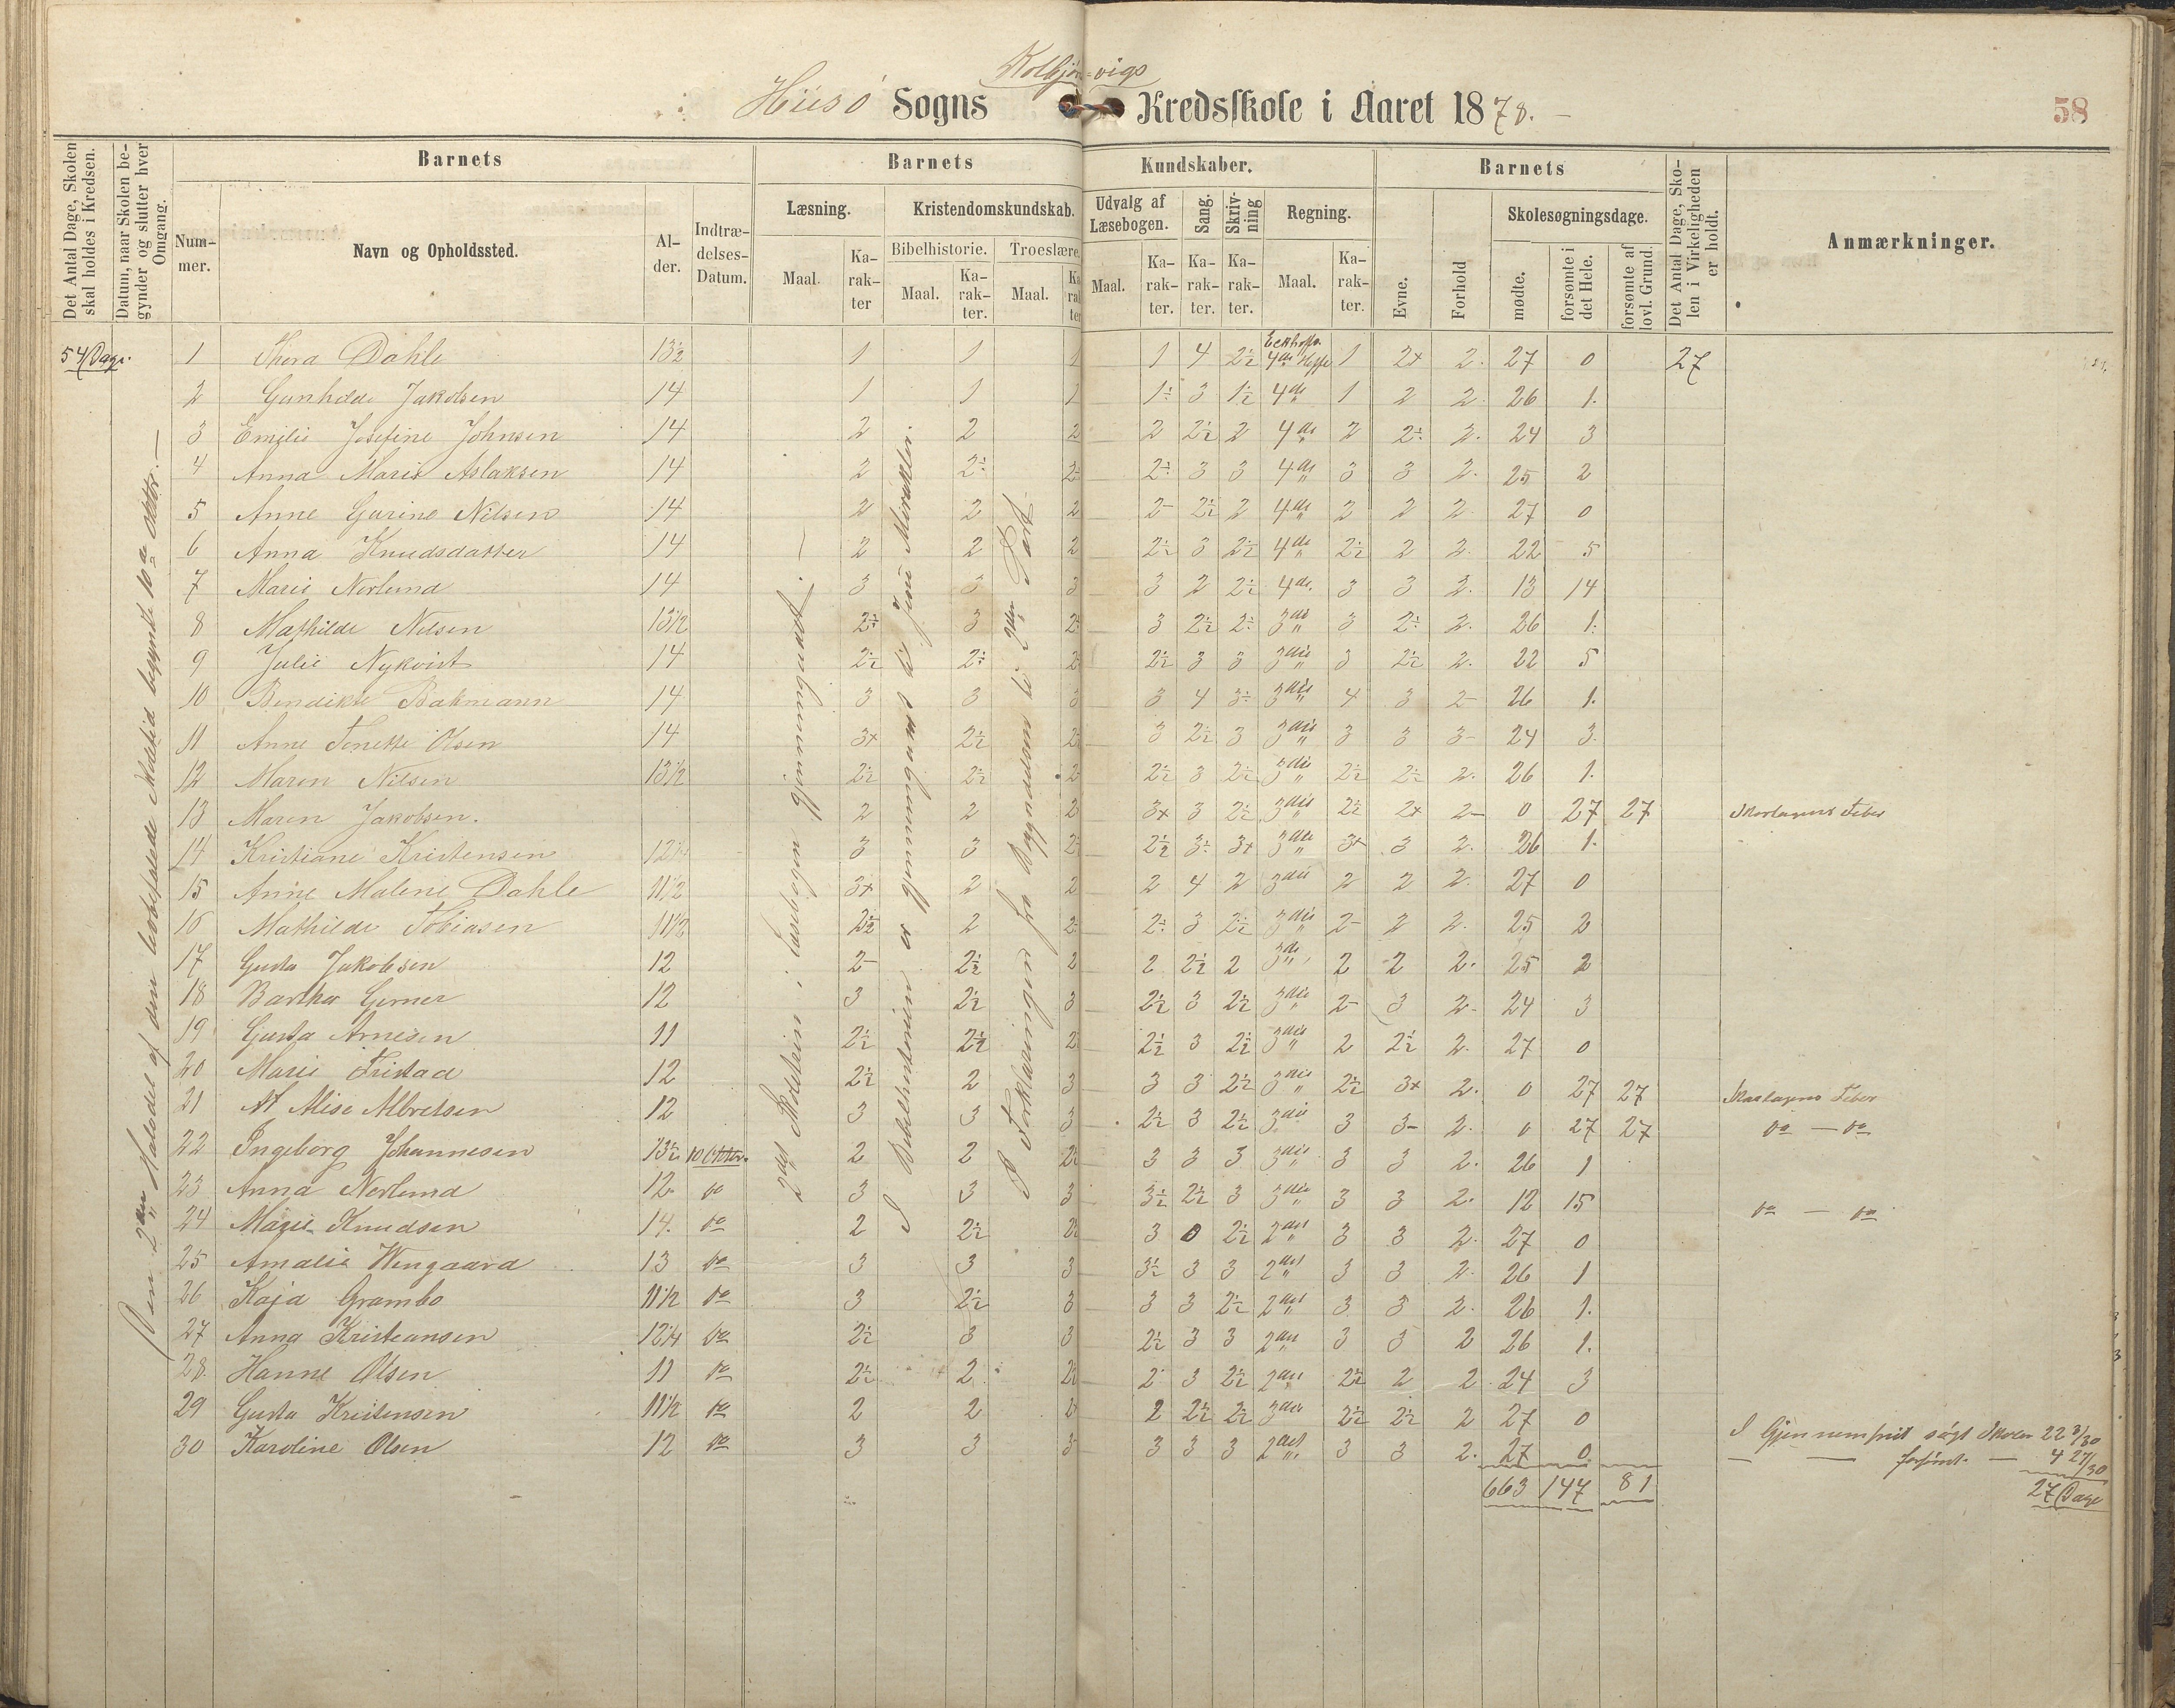 Kolbjørnsvigs
Hiisø Sogns Kredsskole i Aaret 1878.
58
Det Antal Dage, Skolen skal holdes i Kredsen.
Datum, naar Skolen begynder og slutter hver Omgang.
Barnets
Num-mer.
Navn og Opholdssted.
Al-der.
Indtræ-delses-Datum.
Barnets Kundskaber.
Læsning.
Maal.
Ka-rak-ter
Kristendomskundskab.
Bibelhistorie.
Maal.
Ka-rak-ter.
Troeslære.
Maal.
Ka-rak-ter
Udvalg af Læsebogen.
Maal.
Ka-rak-ter.
Sang.
Ka-rak-ter.
Skriv-ning
Ka-rak-ter.
Regning.
Maal.
Ka-rak-ter.
Barnets
Evne.
Forhold
Skolesøgningsdage.
mødte.
forsømte i det Hele.
forsømte af lovl. Grund.
Det Antal Dage, Sko-len i Virkeligheden er holdt.
Anmærkninger.
54 Dage.
1 Thora Dahle 13½ 1 1 1 1 4 2½ 4de Hefte 1 2+ 2. 27 0 27
2 Gunhilde Jakobsen 14 1 1 1 3 1½ 4de 1 2 2. 26 1.
3 Emilie Josefine Johnsen 14 2 2 2 2 2½ 2 4de 2 2. 24 3
4 Anna Marie Aslaksen 14 2 3 3 4de 3 3 2. 25 2
5 Anne Gurine Nilsen 14 2 2 2 2- 2½ 2 4de 2 2 2 27 0
6 Anna Knudsdatter 14 2 2 2 2½ 3 2½ 4de 2½ 2 2. 22 5
7 Marie Norlund 14 3 3 3 3 2 2½ 4de. 3 3 2. 13 14
8 Mathilde Nilsen 13½ 3 3 2½ 3die 3 2. 26 1.
9 Julie Nykvist 14 2½ 2½ 3 3 3die 3 2½ 2. 22 5
10 Bendikte Bakmann 14 3 3 3 3 4 3die 4 3 2- 26 1.
11 Anne Tonette Olsen 14 3+ 2½ 3 2½ 3 3die 3 3 3- 24 3.
12 Maren Nilsen 13½ 2½ 2½ 2½ 3 2½ 3die 2½ 2½ 2. 26 1.
13 Maren Jakobsen. 2 2 2 3+ 3 2½ 3die 2½ 2+ 2- 0 27 27 Skarlagens Feber
14 Kristiane Kristensen 3 3 2½ 3+ 3die 3+ 3 2. 26 1.
15 Anne Malene Dahle 11½ 3+ 2 2 2 4 2 3die 2 2 2. 27 0
16 Mathilde Tobiasen 11½ 2½ 2 3 2½ 3die 2- 2 2. 25 2
17 Gusta Jakobsen 12 2- 2½ 2 2 2½ 2 3die 2 2 2. 25 2
18 Bartha Gerner 12 3 2½ 3 2½ 3 2½ 3die 2- 3 2- 24 3
19 Gusta Arnesen 11 2½ 2½ 2½ 3 2½ 3die 2 2½ 2. 27 0
20 Marie Fristad 12 2½ 2 3 3 3 2½ 3die 2½ 3+ 2. 0 27 27 Skarlagens Feber
21 Alise Albretsen 12 3 3 3 2½ 3 2½ 3die 3 3- 2. 0 27 27 do — do
22 Ingeborg Johannesen 13½ 10 Oktbr. 2 2 2½ 3 3 3 3die 3 3 2. 26 1
23 Anna Norlund 12 do 3 3 3 3½ 2½ 3 3die 3 3 2. 12 15 do — do
24 Marie Knudsen 14. do 2 2½ 2½ 3 0 2½ 2det 3 3 2. 27 0
25 Amalie Wengaard 13 do 3 3 3 3½ 3 3 2det 3 3 2. 26 1
26 Kaja Grambo 11½ do 3 2½ 3 3 3 2½ 2det 3 3 2. 26 1.
27 Anna Kristeansen 12¼ do 2½ 3 3 2½ 3 3 2det 3 3 2 26 1.
28. Hanne Olsen 11 do 2½ 2 2½ 2 3 2½ 2det 2½ 2 2 24 3
29 Gusta Kristensen 11½ do 2 2 2 2½ 2½ 3die 2½ 2½ 2 27 0
30 Karoline Olsen 12 do 3 3 3 3 3 3 2det 3 3 2. 27 0
663 147 81
I Gjennemsnit søgt Skolen 22 3/30
— — forsømt — 4 27/30
27 Dage
Den 2den Halvdel af den lovbefalede Skoletid begyndte 10de Oktbr. —
2det Skoletrin i Læsebogen gjennemgaaet. —
I Bibelhistorien er gjennemgaaet til Jesu Mirakler.
I Forklaringen fra Begyndelsen til 2den Part.